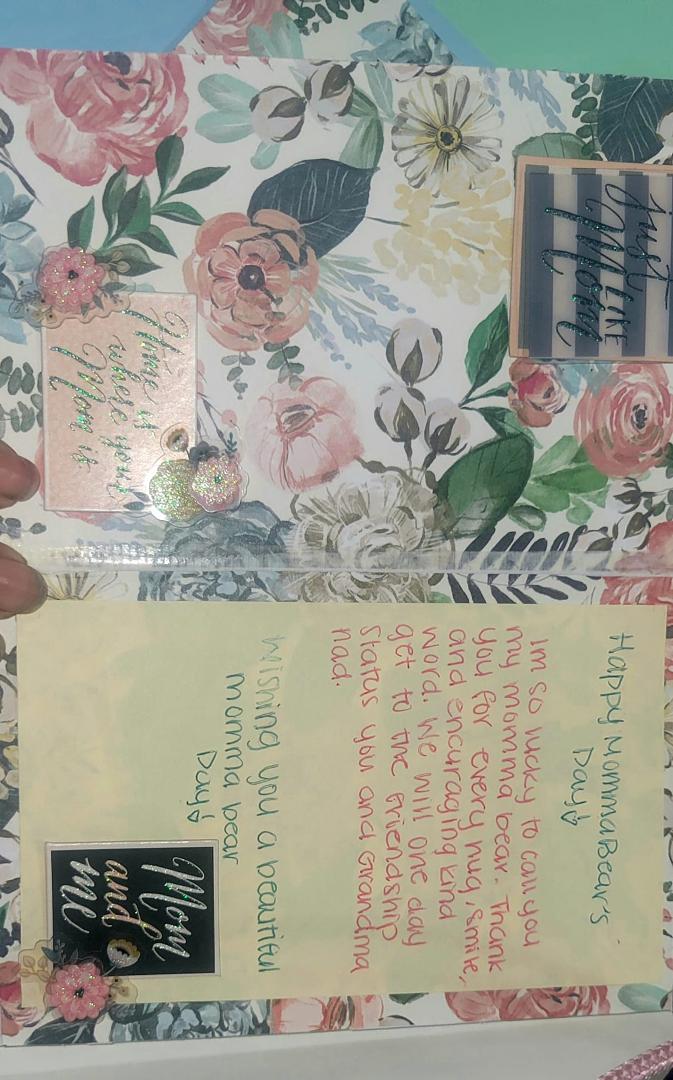 just
LIKE
Mom
Home is
where your
Mom is
Happy MommaBear's
Day
im so lucky to call you
my momma bear. Thank
you for every hug, smile,
and encuraging kind
word. We will one day
get to the friendship
status you and Grandma
had.
Wishing you a beautiful
momma bear
Day
Mom
and
me